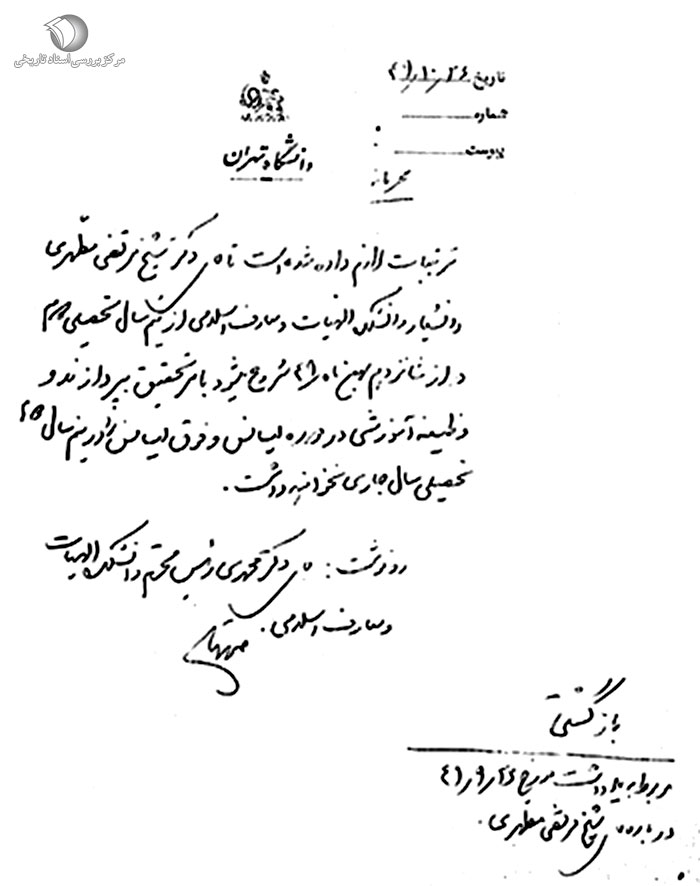 مرکز بررسی اسناد تاریخی
تاریخ
شماره
پیوست
دانشگاه تهران
محرمانه
ترتیبات لازم داده شده است تا آقای دکتر شیخ مرتضی مطهری
دانشیار دانشکده الهیات و معارف اسلامی از نیم سال تحصیلی دوم
که از شانزدهم بهمن ماه شروع میشود بامر تحقیق بپردازند و
وظیفه آموزشی در دوره لیسانس و فوق لیسانس را در نیم سال
تحصیلی سال جاری نخواهند داشت.
رونوشت: آقای دکتر محمدی رئیس محترم دانشکده الهیات
و معارف اسلامی.
بازگشتی
مربوط به یادداشت مورخ
درباره شیخ مرتضی مطهری.